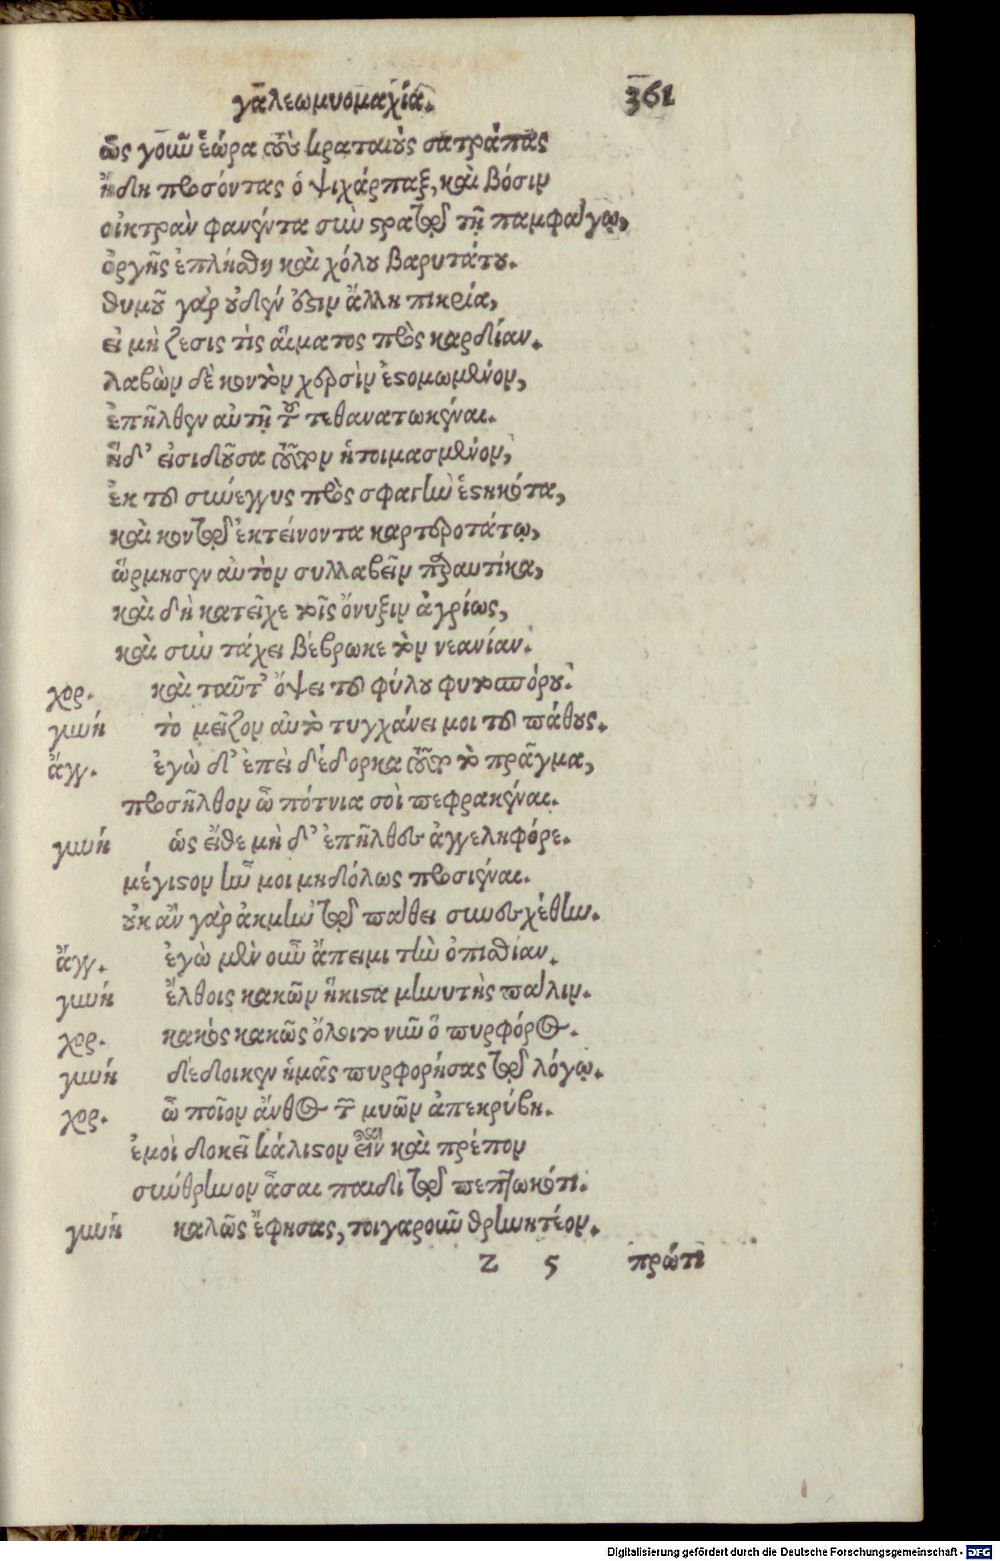 γαλεωμυομαχία. 361
ὡς γοῦν ἑώρα τοὺς κραταιοὺς σατράπας
ἤδη πεσόντας ὁ ψιχάρπαξ, καὶ βόσιν
οἰκτρὰν φανέντα σὺν στρατῷ τῇ παμφάγῳ,
ὀργῆς ἐπλήσθη καὶ χόλου βαρυτάτου.
θυμοῦ γὰρ οὐδέν ἐστιν ἄλλη πικρία,
εἰ μὴ ζέσις τίς αἵματος πρὸς καρδίαν.
λαβὼν δὲ κοντὸν χερσὶν ἐστομωμένον,
ἐπῆλθεν αὐτῇ τοῦ τεθανατωκέναι.
ἡ δ' εἰσιδοῦσα τοῦτον ἡτοιμασμένον,
ἐκ τοῦ σύνεγγυς πρὸς σφαγὴν ἑστηκότα,
καὶ κοντῷ ἐκτείνοντα καρτεροτάτῳ,
ὥρμησεν αὐτὸν συλλαβεῖν παραυτίκα,
καὶ δὴ κατεῖχε τοῖς ὄνυξιν ἀγρίως,
καὶ σὺν τάχει βέβρωκε τὸν νεανίαν.
χορ. καὶ ταῦτ' ὄψει τοῦ φύλου φυτοσπόρου.
γυνή τὸ μεῖζον αὐτὸ τυγχάνει μοι τοῦ πάθους.
ἄγγ. ἐγὼ δ' ἐπεὶ δέδορκα τοῦτο τὸ πρᾶγμα,
προσῆλθον ὦ πότνια σοὶ πεφρακέναι.
γυνή ὡς εἴθε μὴ δ' ἐπῆλθες ἀγγεληφόρε.
μέγιστον ἦν μοι μηδόλως προσιέναι.
οὐκ ἂν γὰρ ἀκμὴν τῷ πάθει συνεσχέθην.
ἄγγ. ἐγὼ μὲν οὖν ἄπειμι τὴν ὀπισθίαν.
γυνή ἔλθοις κακῶν ἥκιστα μηνυτὴς πάλιν.
χορ. κακὸς κακῶς ὄλοιτο νῦν ὁ πυρφόρος.
γυνή δέδοικεν ἡμᾶς πυρφορήσας τῷ λόγῳ.
χορ. ὦ ποῖον ἄνθος τῶν μυῶν ἀπεκρύβη.
ἐμοὶ δοκεῖ κάλιστον εἶναι καὶ πρέπον
σύνθρηνον ᾆσαι παιδὶ τῷ πεπτωκότι.
γυνή καλῶς ἔφησας, τοιγαροῦν θρηνητέον.
Z 5 πρώτι
Digitalisierung gefördert durch die Deutsche Forschungsgemeinschaft - DFG